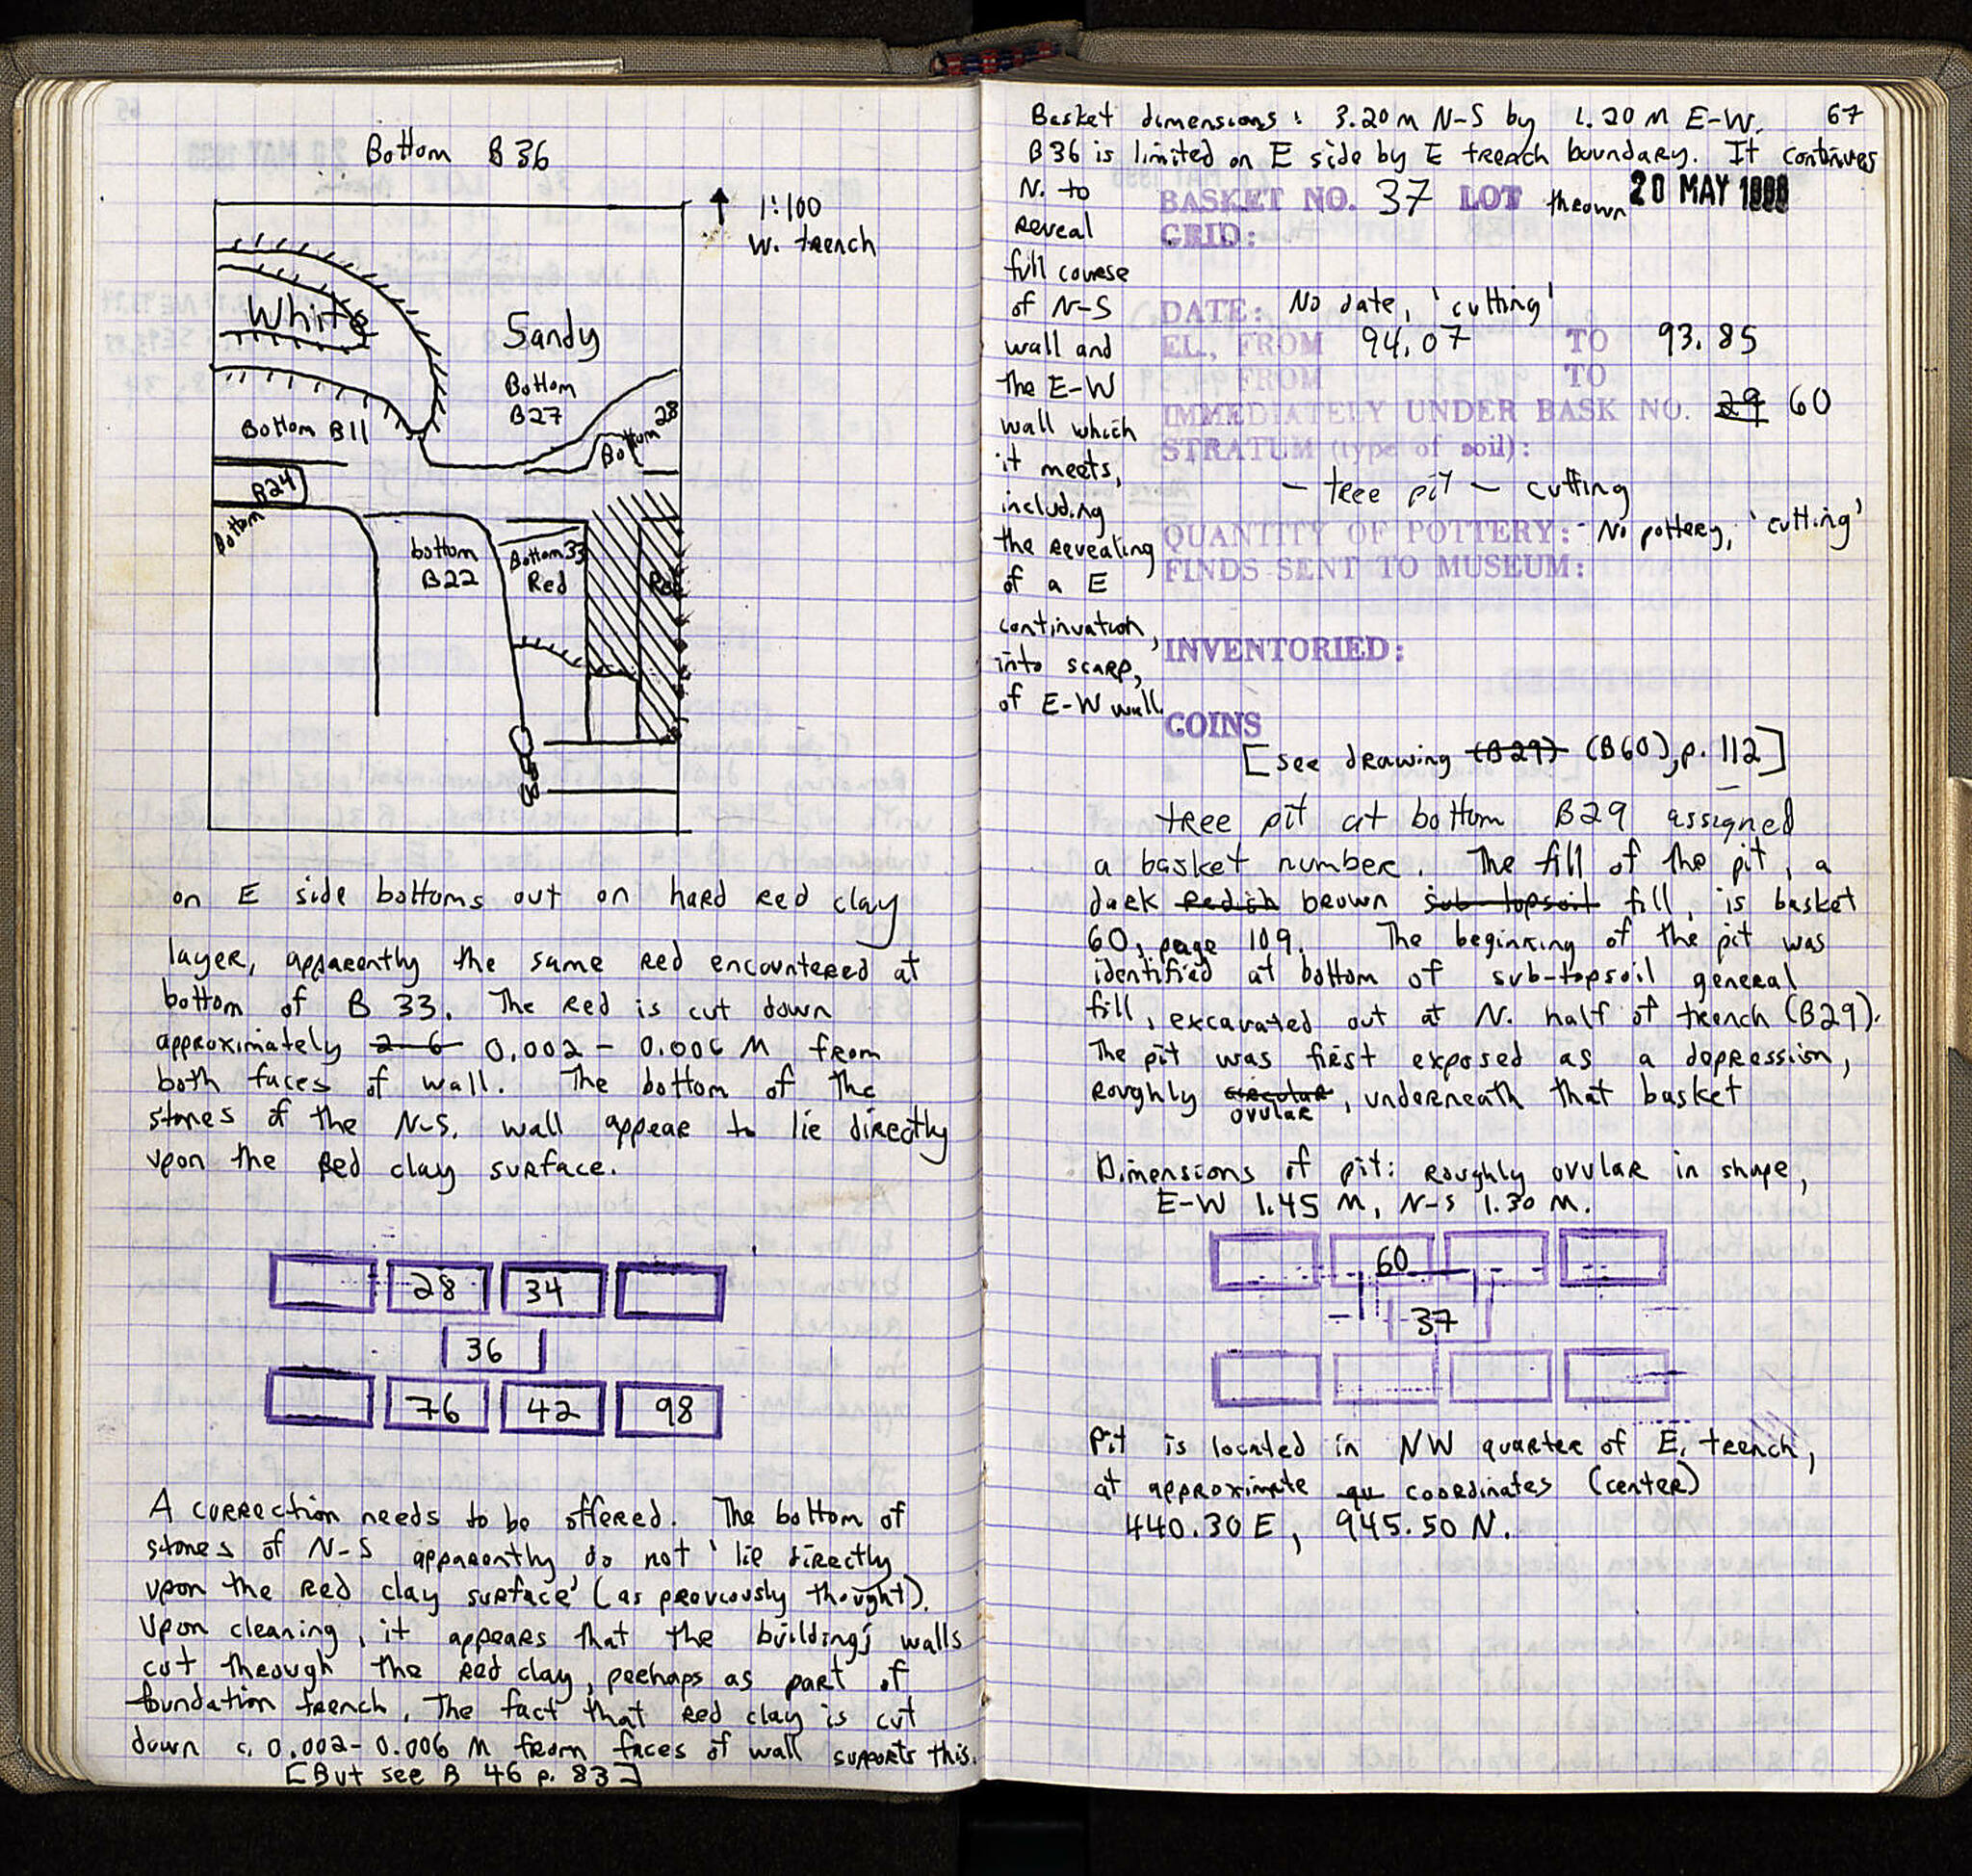 Bottom B36
1:100
W. trench
White
Sandy
Bottom
B27
Bottom 28
Bottom B11
B24
Bottom
bottom
B22
Bottom 33
Red
Red
on E side bottoms out on hard red clay
layer, apparently the same red encountered at
bottom of B 33. The red is cut down
approximately 2-6 0.002 - 0.006 M from
both faces of wall. The bottom of the
stones of the N-S. wall appear to lie directly
upon the red clay surface.
28 34
36
76 42 98
A correction needs to be offered. The bottom of
stones of N-S apparently do not 'lie directly
upon the red clay surface' (as previously thought).
Upon cleaning, it appears that the building's walls
cut through the red clay, perhaps as part of
foundation trench. The fact that red clay is cut
down c. 0.002-0.006 M from faces of wall supports this.
[But see B 46 p. 83]
67
Basket dimensions: 3.20m N-S by 1.20 M E-W.
B36 is limited on E side by E trench boundary. It continues
N. to
reveal
full course
of N-S
wall and
the E-W
wall which
it meets,
including
the revealing
of a E
continuation,
into scarp,
of E-W wall
BASKET NO. 37 LOT thrown 20 MAY
GRID:
DATE: No date, 'cutting'
EL., FROM 94.07 TO 93.85
FROM TO
IMMEDIATELY UNDER BASK NO. 29 60
STRATUM (type of soil):
- tree pit - cutting
QUANTITY OF POTTERY: No pottery, 'cutting'
FINDS SENT TO MUSEUM:
INVENTORIED:
COINS
[see drawing (B29) (B60), p. 112]
tree pit at bottom B29 assigned
a basket number. The fill of the pit, a
dark redish brown sub topsoil fill, is basket
60, page 109. The beginning of the pit was
identified at bottom of sub-topsoil general
fill, excavated out at N. half of trench (B29).
The pit was first exposed as a depression,
roughly circular ovular, underneath that basket
Dimensions of pit: roughly ovular in shape,
E-W 1.45 M, N-S 1.30 M.
60
37
Pit is located in NW quarter of E. trench,
at approximate coordinates (center)
440.30 E, 945.50 N.